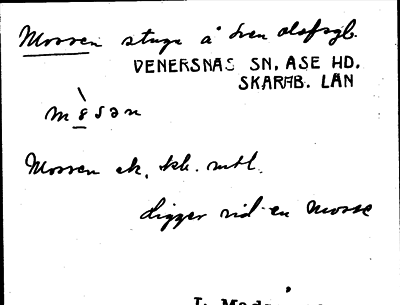 Mossen stuga å Sven Olofsgb.
VENERSNÄS SN, ÅSE HD.
SKARAB. LÄN
mòsən
Mossen ek. kb. mtl.
Ligger vid en mosse